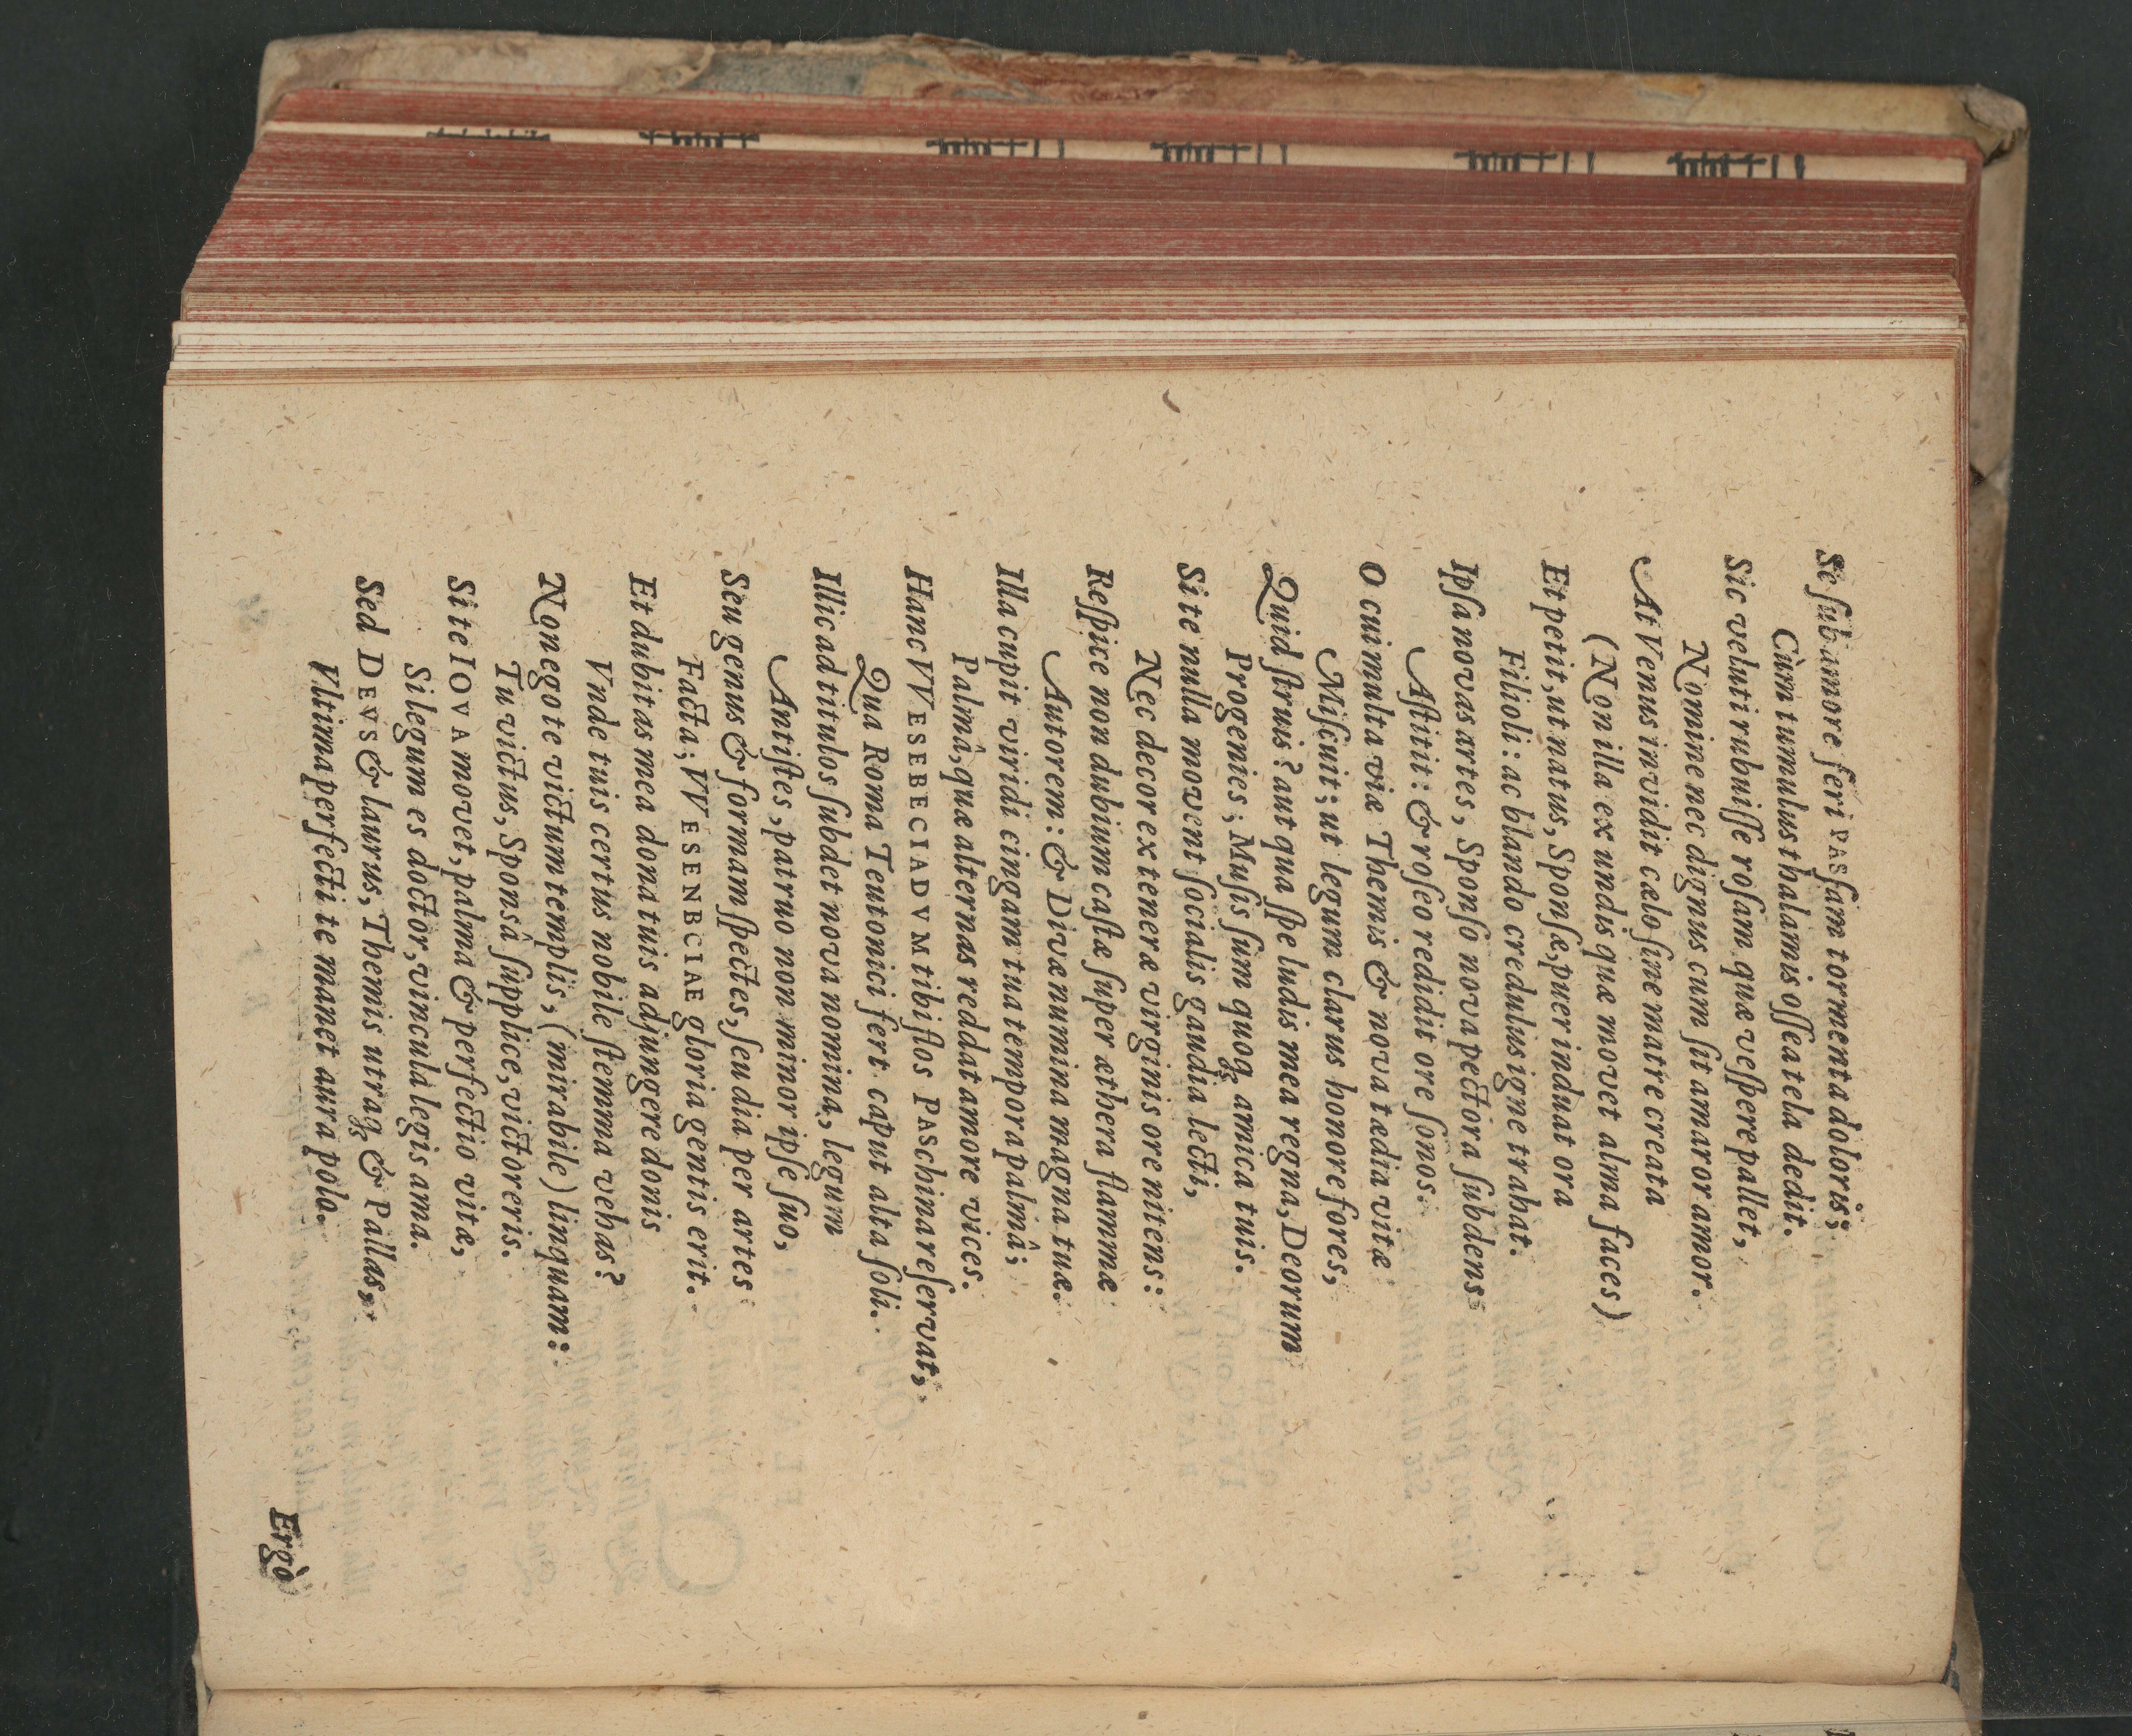 Se ſub amore feri PASſam tormenta doloris;
Cùm tumulus thalamis oſſea tela dedit.
Sic veluti rubuiſſe roſam quæ veſpere pallet,
Nomine nec dignus cum ſit amaror amor.
At Venus invidit cælo ſine matre creata
(Non illa ex undis quæ movet alma faces)
Et petit, ut natus, Sponſæ, puer induat ora
Filioli: ac blando credulus igne trahat.
Ipſa novas artes, Sponſo nova pectora ſubdens
Aſtitit: & roſeo redidit ore ſonos.
O cui multa viæ Themis & nova tædia vitæ
Miſcuit; ut legum clarus honore fores,
Quid ſtruis? aut qua ſpe ludis mea regna, Deorum
Progenies; Muſis ſum quoq; amica tuis.
Si te nulla movent ſocialis gandia lecti,
Nec decor ex teneræ virginis ore nitens:
Reſpice non dubium caſtæ ſuper æthera flammæ
Autorem: & Divæ numina magna tuæ.
Illa cupit viridi cingam tua tempora palmâ;
Palmâ, quæ alternas reddat amore vices.
Hanc VVESEBECIADVM tibi flos PASchina reſervat,
Qua Roma Teutonici fert caput alta ſoli.
Illic ad titulos ſubdet nova nomina, legum
Antiſtes, patruo non minor ipſe ſuo,
Seu genus & formam ſpectes, ſeu dia per artes
Facta; VVESENBCIAE gloria gentis erit.
Et dubitas mea dona tuis adjungere donis
Vnde tuis certus nobile ſtemma vehas?
Non ego te victum templis, (mirabile) linquam:
Tu victus, Sponsâ ſupplice, victor eris.
Si te IOVA movet, palma & perfectio vitæ,
Si legum es doctor, vincula legis ama.
Sed DEVS & laurus, Themis utraq; & Pallas,
Vltima perfecti te manet aura polo.
Ergò